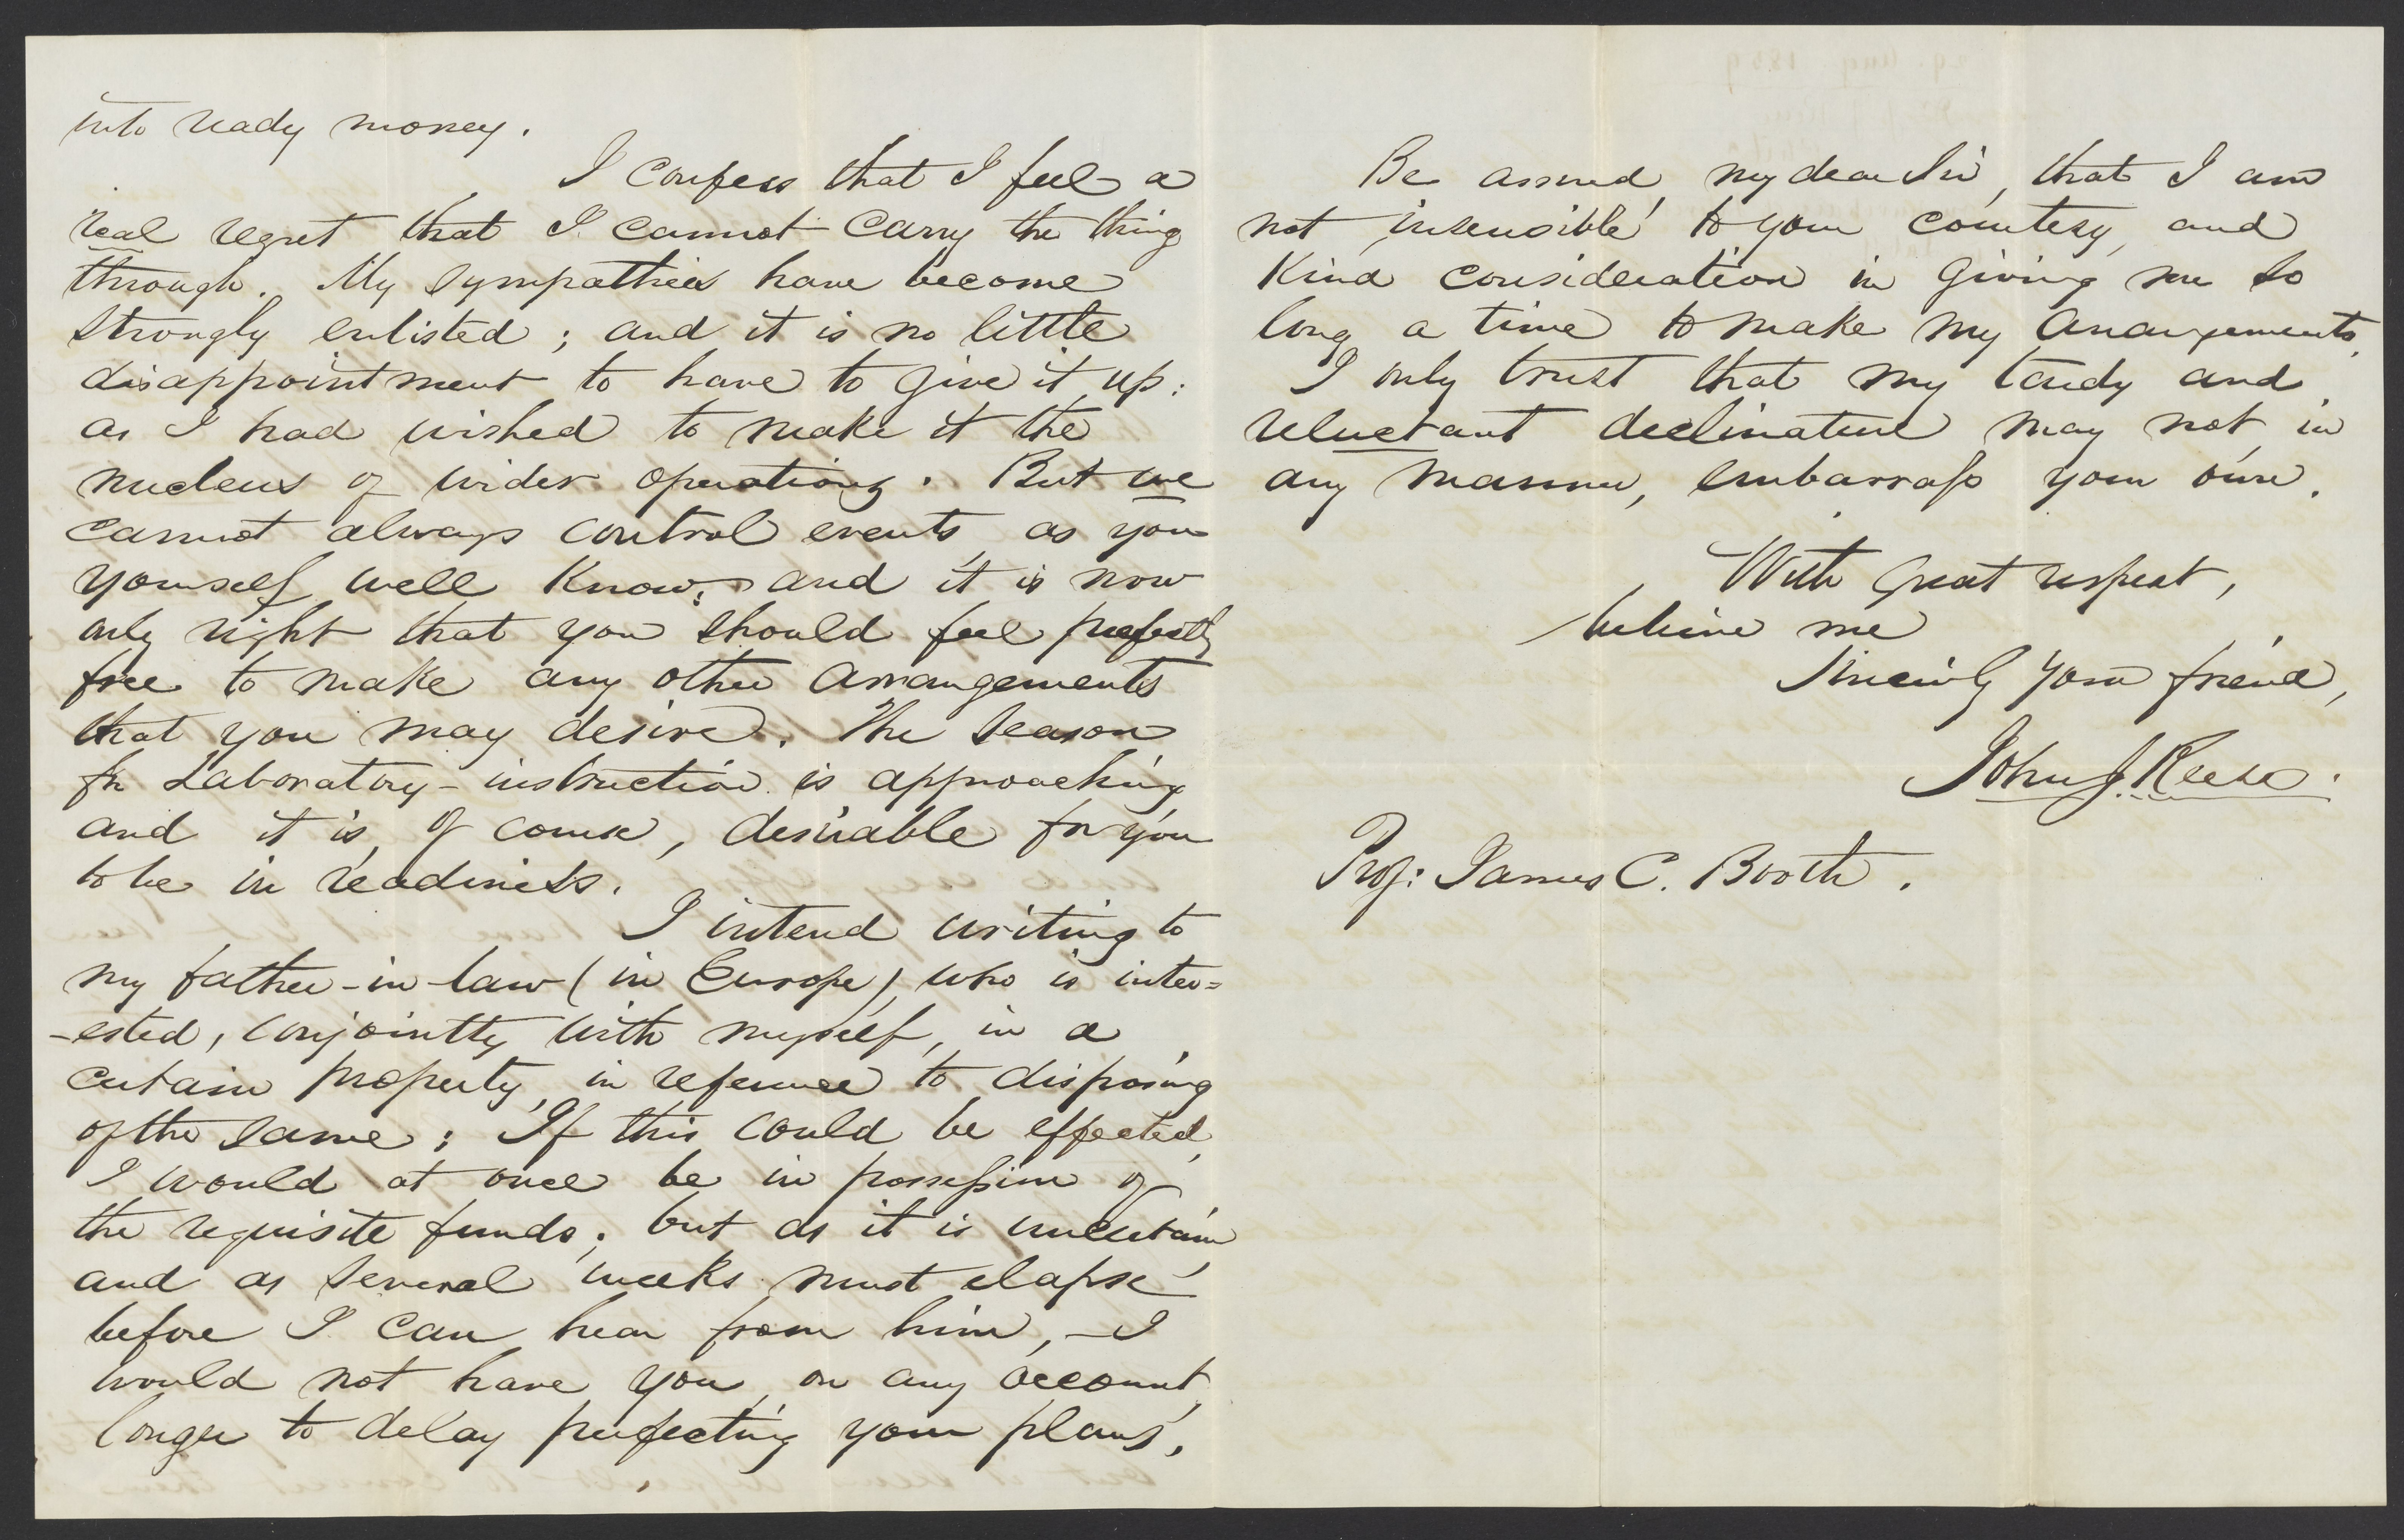 into ready money.
I confess that I feel a
real regret that I cannot carry the thing
through. My sympathies have become
strongly enlisted; and it is no little
disappointment to have to give it up:
as I had wished to make it the
nucleus of wider operations. But we
cannot always control events, as you
yourself well know; and it is now
only right that you should feel perfectly
free to make any other arrangements
that you may desire. The season
for Laboratory-instruction is approaching
and it is, of course, desirable for you
to be in readiness.
I intend writing to
my father-in-law (in Europe) who is inter=
-ested, conjointly with myself, in a
certain property, in reference to disposing
of the same; If this could be effected,
I would at once be in possession of
the requisite funds; but as it is uncertain,
and as several weeks must elapse
before I can hear from him, — I
would not have you, on any account,
longer to delay perfecting your plans.
Be assured, my dear Sir, that I am
not insensible to your courtesy, and
kind consideration in giving me so
long a time to make my arrangements.
I only trust that my tardy and
reluctant declinature may not, in
any manner, embarrass your own.
With great respect,
believe me
Sincerely your friend,
John J. Reese.
Prof: James C. Booth.